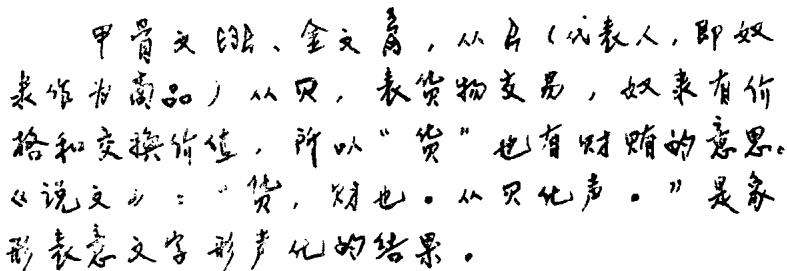 甲骨文、金文，从（代表人，即奴
隶作为商品）从贝，表货物交易，奴隶有价
格和交换价值，所以“货”也有财贿的意思。
《说文》：“货，财也。从贝化声。”是象
形表意文字形声化的结果。